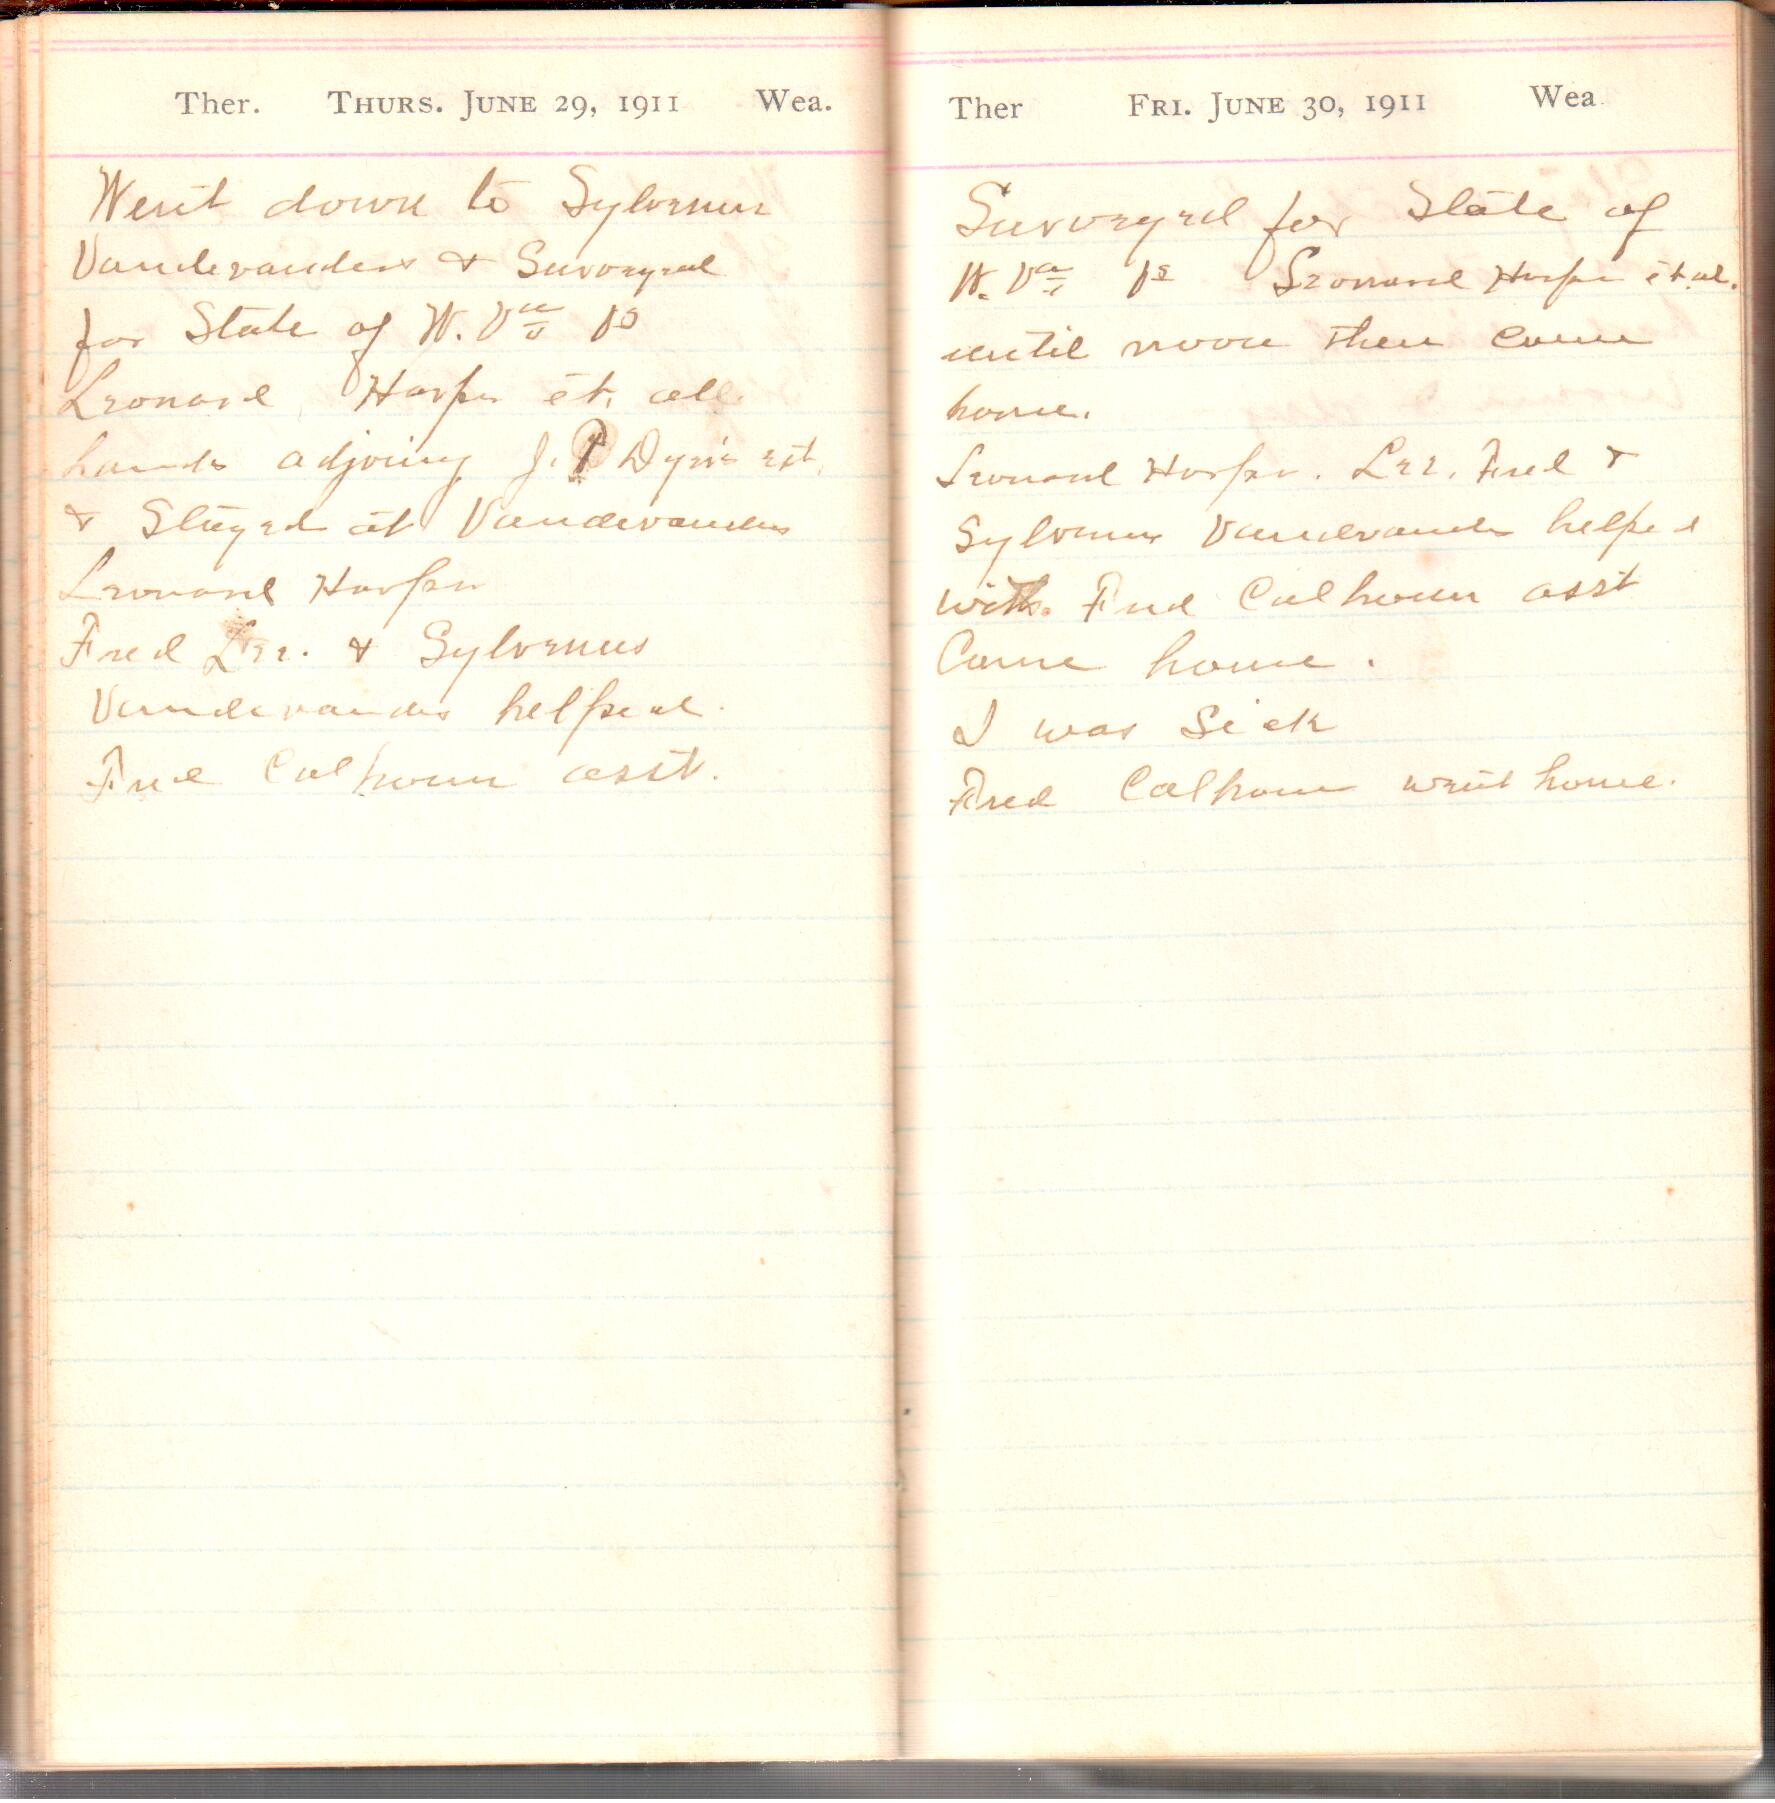 Ther. THURS. JUNE 29, 1911 Wea.
Went down to Sylvenus
Vandevanders & Surveyed
for State of W. Va vs
Leonard Harper et. all.
lands adjoing J. P Dyer's est.
& Stayed at Vandevanders
Leonard Harper
Fred Lee. & Sylvenus
Vandevander helped.
Fred Calhoun asst.
Ther FRI. JUNE 30, 1911 Wea
Surveyed for State of
W. Va vs Leonard Harper et. al.
until noon then came
home.
Leonard Harper. Lee. Fred &
Sylvenus Vandevander helped
with. Fred Calhoun asst
Came home.
I was Sick
Fred Calhoun went home.